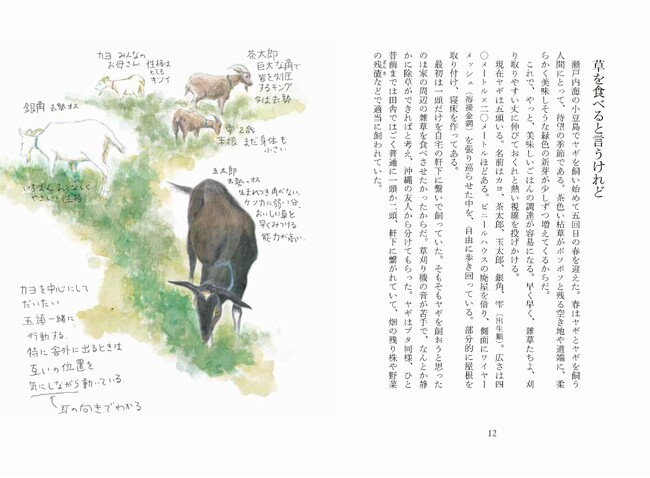 草を食べると言うけれど
瀬戸内海の小豆島でヤギを飼い始めて五回目の春を迎えた。春はヤギとヤギを飼う
人間にとって、待望の季節である。茶色い枯草がポソポソと残る空き地や道端に、柔
らかく美味しそうな緑色の新芽が少しずつ増えてくるからだ。
これで、やっと、美味しいごはんの調達が容易になる。早く早く、雑草たちよ、刈
り取りやすい丈に伸びておくれと熱い視線を投げかける。
現在ヤギは五頭いる。名前はカヨ、茶太郎、玉太郎、銀角、雫（出生順）。広さは四
〇メートル×二〇メートルほどある。ビニールハウスの廃屋を借り、側面にワイヤー
メッシュ（溶接金網）を張り巡らせた中を、自由に歩き回っている。部分的に屋根を
取り付け、寝床を作ってある。
最初は一頭だけを自宅の軒下に繋いで飼っていた。そもそもヤギを飼おうと思った
のは家の周辺の雑草を食べさせたかったからだ。草刈り機の音が苦手で、なんとか静
かに除草ができればと考え、沖縄の友人から分けてもらった。ヤギはブタ同様、ひと
昔前までは田舎ではごく普通に一頭か二頭、軒下に繋がれていて、畑の残り株や野菜
の残渣などで適当に飼われていた。
12
カヨ みんなの
お母さん 性格は
とても
キツイ
茶太郎
巨大な角で
皆を制圧
するキング
今は去勢
銀角 去勢オス
いちばんおとなしくて
やさしい性格
雫 2歳
末娘 まだ身体も
小さい
玉太郎
去勢オス
生まれつき角がない。
ケンカに弱い分、
おいしい草を
早くみつける
能力が高い。
カヨを中心にして
だいたい
五頭一緒に
行動する。
特に舎外に出るときは
互いの位置を
気にしながら動いている。
耳の向きでわかる